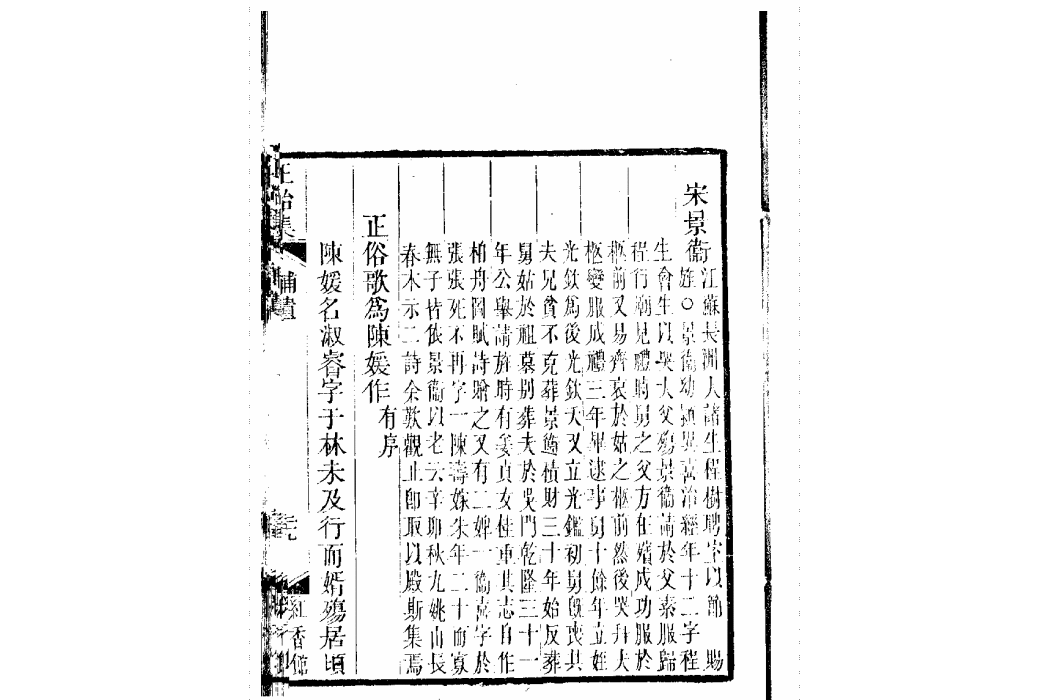 宋景衞
江蘇長洲人諸生程樹聘室以節賜
旌○景衞幼穎異喜治經年十二字程
生會生以哭大父殤景衞請於父素服歸
程行廟見禮時舅之父方在殯成功服於
柩前又易齊衰於姑之柩前然後哭丹夫
柩變服成禮三年畢逮事舅十餘年立姪
光欽為後光欽夭又立光鑑初舅旣喪其
夫兄貧不克葬景衞積財三十年始反葬
舅姑於祖墓別葬夫於吳門乾隆三十一
年公舉請旌時有姜貞女桂重其志自作
柏舟圖賦詩贈之又有二婢一衞喜字於
張張死不再字一陳壽姝朱年二十而寡
無子皆依景衞以老云辛卯秋九姚山長
春木示二詩余歎觀止卽取以殿斯集焉
正俗歌爲陳媛作有序
陳媛名淑睿字于林未及行而婿殤居頃
正始集
補遺
三九
紅香館